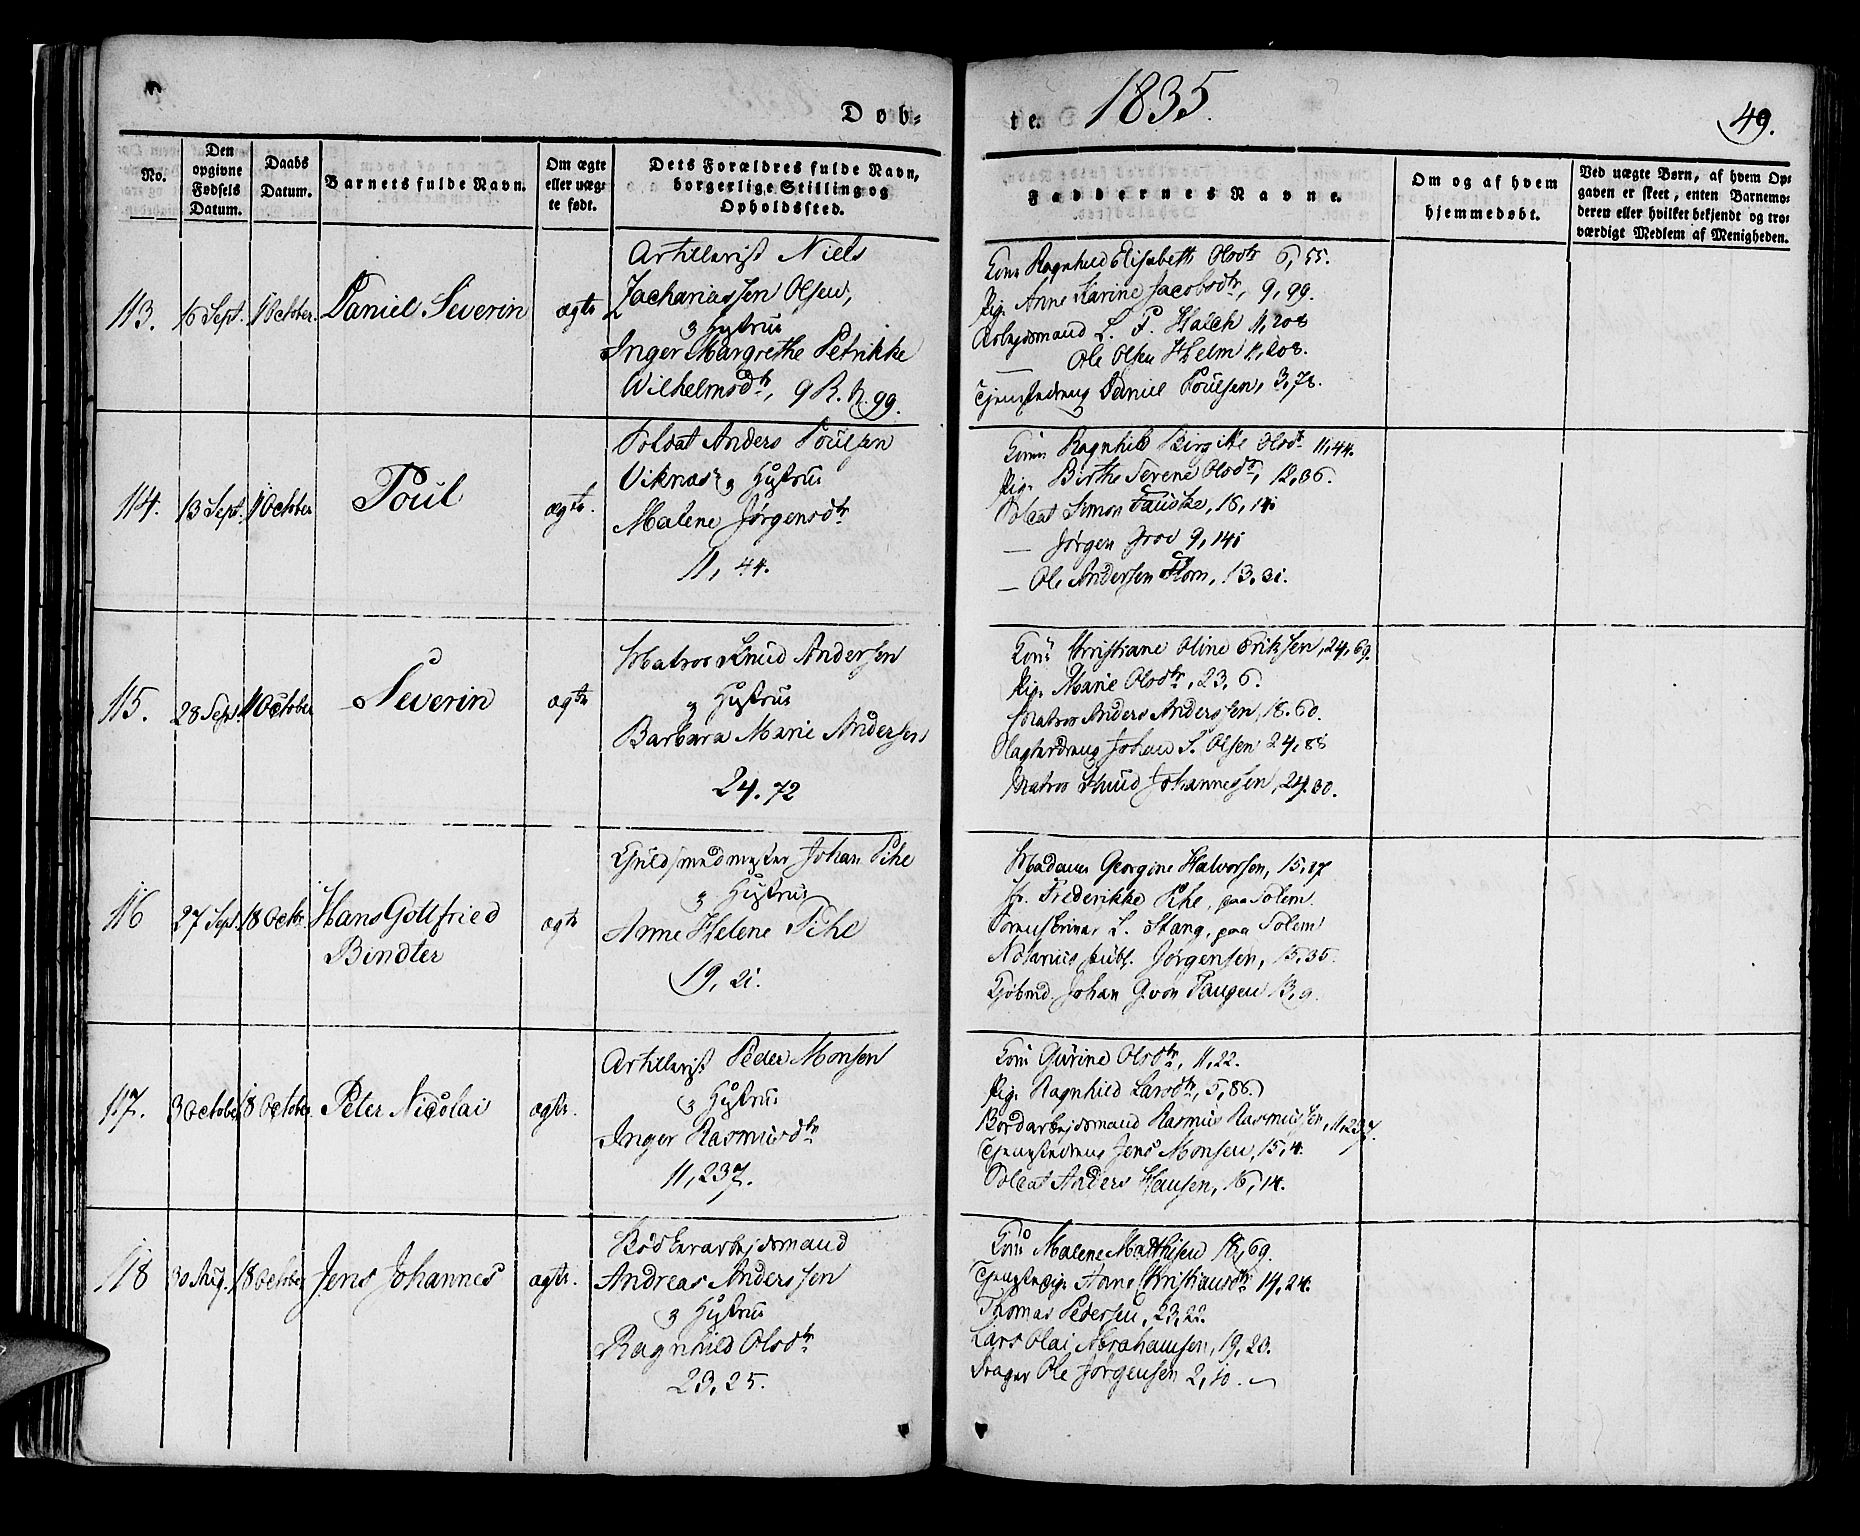 Døb-
te. 1835.
49.
No.
Den opgivne Fødsels Datum.
Daabs Datum.
Barnets fulde Navn.
Om ægte eller uæg-te født.
Dets Forældres fulde Navn, borgerlige Stilling og Opholdssted.
Faddernes Navne.
Om og af hvem hjemmedøbt.
Ved uægte Børn, af hvem Op-
gaven er skeet, enten Barnemo-
deren eller hvilket bekjendt og tro-
værdigt Medlem af Menigheden.
113. 16 Sept. 11 October. Daniel Severin ægte
Artillerist Niels
Zachariassen Olsen,
og Hustrue
Inger Margrethe Petrikke
Wilhelmsdtr, 9 R. N. 99.
Kone Ragnhild Elisabeth Olsdtr 6, 55.
Pige Anne Karine Jacobsdtr, 9, 99.
Arbejdsmand L. P. Halch 11, 208
— Ole Olsen Helm 11, 208.
Tjenestedreng Daniel Poulsen, 3, 78.
114. 13 Sept. 11 October Poul ægte.
Soldat Anders Poulsen
Viknæs og Hustrue
Malene Jørgensdtr
11, 44.
Kone Ragnhild Birgitte Olsdtr 11, 44.
Pige Birthe Serene Olsdtr, 12, 36.
Soldat Simon Fauske, 18, 14
— Jørgen 9, 141
— Ole Andersen Flom, 13, 31.
115. 28 Sept. 11 October Severin ægte
Matros Knud Andersen
og Hustrue
Barbara Marie Andersen
24. 72
Kone Christiane Oline Eriksen, 24, 69.
Pige Marie Olsdtr, 23, 6.
Matros Anders Anderssen, 18. 60.
Slagterdreng Johan S. Olsen 24, 88
Matros Knud Johannessen, 24. 30.
116 27 Sept. 18 Octbr. Hans Gottfried
Bindter
ægte
Guldsmedmester Johan Pihl
og Hustrue
Anne Helene Pihl
19, 21.
Madame Georgine Halvorsen, 15, 17
Fr. Frederikke Pihl, paa Solem.
Sorenskriver L. Stang, paa Solem
Notarius publ. Jørgensen, 15, 35.
Kjøbmd. Johan G. von Tangen 13, 9.
117. 3 October 18 October. Peter Nicolai ægte.
Artillerist Peder Monsen
og Hustrue
Inger Rasmusdtr
11, 237.
Kone Gurine Olsdtr, 11, 22.
Pige Ragnhild Larsdtr, 5, 86.
Bordarbejdsmand Rasmus Rasmussen, 11, 237.
Tjenestedreng Jens Monsen, 15, 4.
Soldat Anders Hansen, 16, 14.
118 30 Aug. 18 October Jens Johannes ægte.
Bødkerarbejdsmand
Andreas Anderssen
og Hustrue
Ragnhild Olsdtr
23, 25.
Kone Malene Mathisen 18, 69.
Tjenestepige Anne Christiansdtr 14, 24.
Thomas Pedersen, 23, 22.
Lars Olai Abrahamsen, 19, 20.
Drager Ole Jørgensen 2, 10.